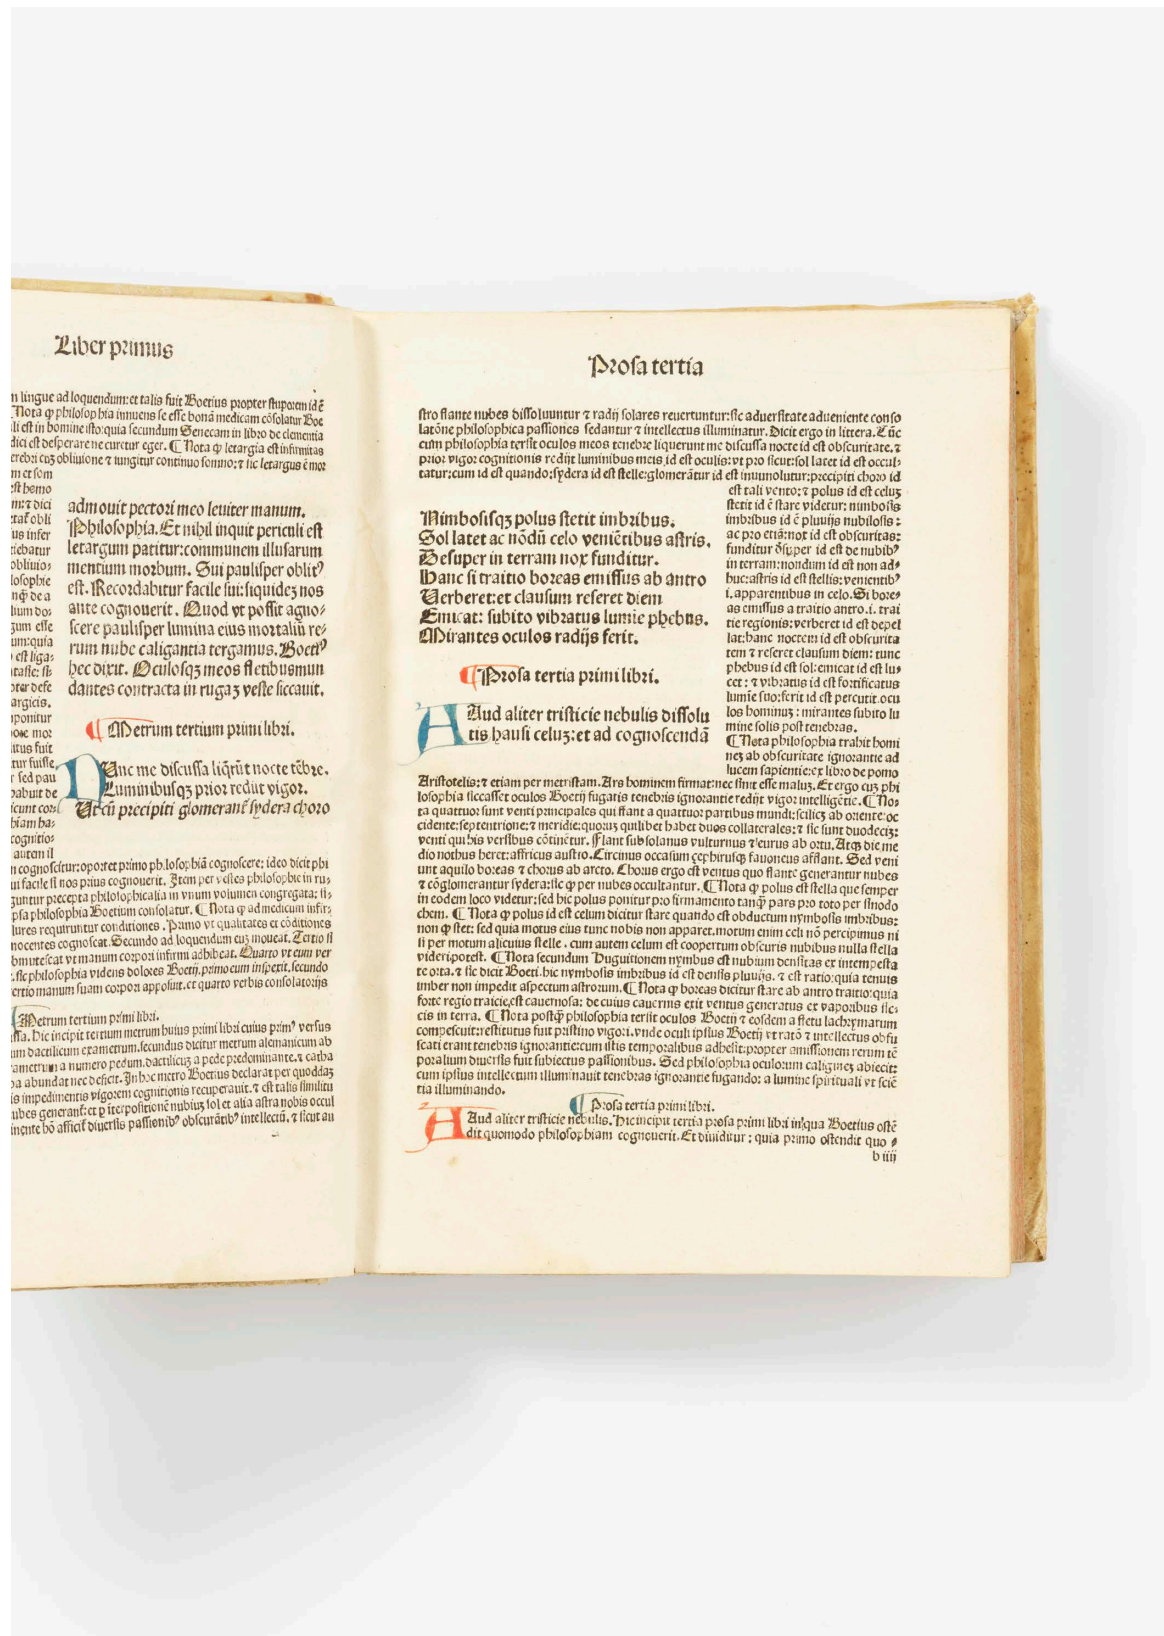 Liber primus
n lingue ad loquendum: et talis fuit Boetius propter stuporem id ē
Nota ꝙ philosophia innuens se esse bonā medicam cōsolatur Boe
li est in homine isto: quia secundum Senecam in libro de clementia
dici est desperare ne curetur eger. ¶ Nota ꝙ letargia est infirmitas
rebri cuꝫ obliuione ⁊ iungitur continuo somno: ⁊ sic letargus ē mor
m et som
st homo
m: ⁊ dici
tat̄ obli
us infer
tiebatur
obliuio⸗
losophie
nꝙ̄ de a
lium do⸗
gum esse
um: quia
est liga⸗
pter defe
argicis.
mponitur
oꝛe mor
itus fuit
tur fuisse
r sed pau
pabuit de
icunt cor
biam ha⸗
cognitio⸗
autem il
admouit pectori meo leuiter manum.
Philosophia. Et nihil inquit periculi est
letargum patitur: communem illusarum
mentium morbum. Sui paulisper oblitꝰ
est. Recordabitur facile sui: siquideꝫ nos
ante cognouerit. Quod vt possit agno⸗
scere paulisper lumina eius mortaliū re⸗
rum nube caligantia tergamus. Boetiꝰ
hec dixit. Oculosqꝫ meos fletibus mun
dantes contracta in rugaꝫ veste siccauit.
¶ Metrum tertium primi libri.
Nunc me discussa liqr̄ūt nocte tēbre.
Luminibusqꝫ prior redijt vigor.
Ut cū precipiti glomerant̄ sydera choro
n cognoscitur: oportet primo philosophiā cognoscere: ideo dicit phi
ui facile si nos prius cognouerit. Item per vestes philosophie in ru⸗
guntur precepta philosophicalia in vnum volumen congregata: si⸗
psa philosophia Boetium consolatur. ¶ Nota ꝙ ad medicum infir⸗
lures requiruntur conditiones. Primo vt qualitates et cōditiones
nocentes cognoscat. Secundo ad loquendum euꝫ moueat. Tertio si
bmutescat vt manum corpori infirmi adhibeat. Quarto vt eum ver
. sic philosophia videns dolores Boetij. primo eum inspexit. secundo
ertio manum suam corpori apposuit. et quarto verbis consolatorijs
Metrum tertium primi libri.
ssa. Hic incipit tertium metrum huius primi libri cuius primꝰ versus
um dactilicum exametrum. secundus dicitur metrum alemanicum ab
ametrum a numero pedum. dactilicuꝫ a pede predominante. ⁊ catha
a abundat nec deficit. In hoc metro Boetius declarat per quoddaꝫ
is impedimentis vigorem cognitionis recuperauit. ⁊ est talis similitu
ubes generant̄: et ꝑ īterpositionē nubiuꝫ sol et alia astra nobis occul
inente bō afficit̄ diuersis passionibꝰ obscurātibꝰ intellectū. ⁊ sicut au
Prosa tertia
stro flante nubes dissoluuntur ⁊ radij solares reuertuntur: sic aduersitate adueniente conso
latiōne philosophica passiones sedantur ⁊ intellectus illuminatur. Dicit ergo in littera. Tūc
cum philosophia tersit oculos meos tenebre liquerunt me discussa nocte id est obscuritate. ⁊
prior vigor cognitionis redijt luminibus meis id est oculis: vt pro sicut: sol latet id est occul⸗
tatur: cum id est quando: sydera id est stelle: glomerātur id est inuoluutur: precipiti choro id
est tali vento: ⁊ polus id est celuꝫ
stetit id ē stare videtur: nimbosis
imbribus id ē pluuijs nubilosis:
ac pro etiā: nox id est obscuritas:
funditur dsuper id est de nubibꝰ
in terram: nondum id est non ad⸗
huc: astris id est stellis: venientibꝰ
i. apparentibus in celo. Si bore⸗
as emissus a traitio antro .i. trai
tie regionis: verberet id est depel
lat: hanc noctem id est obscurita
tem ⁊ reseret clausum diem: tunc
phebus id est sol: emicat id est lu⸗
cet: ⁊ vibratus id est fortificatus
lumīe suo: ferit id est percutit. ocu
los hominuꝫ: mirantes subito lu
mine solis post tenebras.
¶ Nota philosophia trahit homi
neꝫ ab obscuritate ignorantie ad
lucem sapientie: ex libro de pomo
Nimbosisqꝫ polus stetit imbribus.
Sol latet ac nōdū celo veniētibus astris.
Desuper in terram nox funditur.
Hanc si traitio boreas emissus ab antro
Verberet: et clausum reseret diem
Emicat: subito vibratus lumīe phebus.
Mirantes oculos radijs ferit.
¶ Prosa tertia primi libri.
HAud aliter tristicie nebulis dissolu
tis hausi celuꝫ: et ad cognoscendā
Aristotelis: ⁊ etiam per metristam. Ars hominem firmat: nec sinit esse maluꝫ. Et ergo cuꝫ phi
losophia siccasset oculos Boetij fugatis tenebris ignorantie redijt vigor intelligētie. ¶ No⸗
ta quattuor sunt venti principales qui flant a quattuor partibus mundi: scilicꝫ ab oriente: oc
cidente: septentrione: ⁊ meridie: quoruꝫ quilibet habet duos collaterales: ⁊ sic sunt duodeciꝫ:
venti qui his versibus cōtinētur. Flant subsolanus vulturnus ⁊ eurus ab ortu. Atqꝫ die me
dio nothus heret: affricus austro. Circinus occasum cephirusqꝫ fauoneus afflant. Sed veni
unt aquilo boreas ⁊ chorus ab arcto. Chorus ergo est ventus quo flante generantur nubes
⁊ cōglomerantur sydera: sic ꝙ per nubes occultantur. ¶ Nota ꝙ polus est stella que semper
in eodem loco videtur: sed hic polus ponitur pro firmamento tanꝙ̄ pars pro toto per sinodo
chem. ¶ Nota ꝙ polus id est celum dicitur stare quando est obductum nymbosis imbribus:
non ꝙ stet: sed quia motus eius tunc nobis non apparet. motum enim celi nō percipimus ni
si per motum alicuius stelle. cum autem celum est coopertum obscuris nubibus nulla stella
videri potest. ¶ Nota secundum Huguitionem nymbus est nubium densitas ex intempesta
te orta. ⁊ sic dicit Boeti. hic nymbosis imbribus id est densis pluuijs. ⁊ est ratio: quia tenuis
imber non impedit aspectum astrorum. ¶ Nota ꝙ boreas dicitur stare ab antro traitio: quia
forte regio traicie, est cauernosa: de cuius cauernis exit ventus generatus ex vaporibus sic⸗
cis in terra. ¶ Nota postꝙ̄ philosophia tersit oculos Boetij ⁊ eosdem a fletu lachrymarum
compescuit: restitutus fuit pristino vigori. vnde oculi ipsius Boetij vt ratō ⁊ intellectus obfu
scati erant tenebris ignorantie: cum istis temporalibus adhesit: propter amissionem rerum tē
poralium diuersis fuit subiectus passionibus. Sed philosophia oculorum caligineꝫ abiecit:
cum ipsius intellectum illuminauit tenebras ignorantie fugando: a lumine spirituali vt sciē
tia illuminando.
¶ Prosa tertia primi libri.
HAud aliter tristicie nebulis. Hic incipit tertia prosa primi libri in qua Boetius osten⸗
dit quomodo philosophiam cognouerit. Et diuiditur: quia primo ostendit quo⸗
b iiij